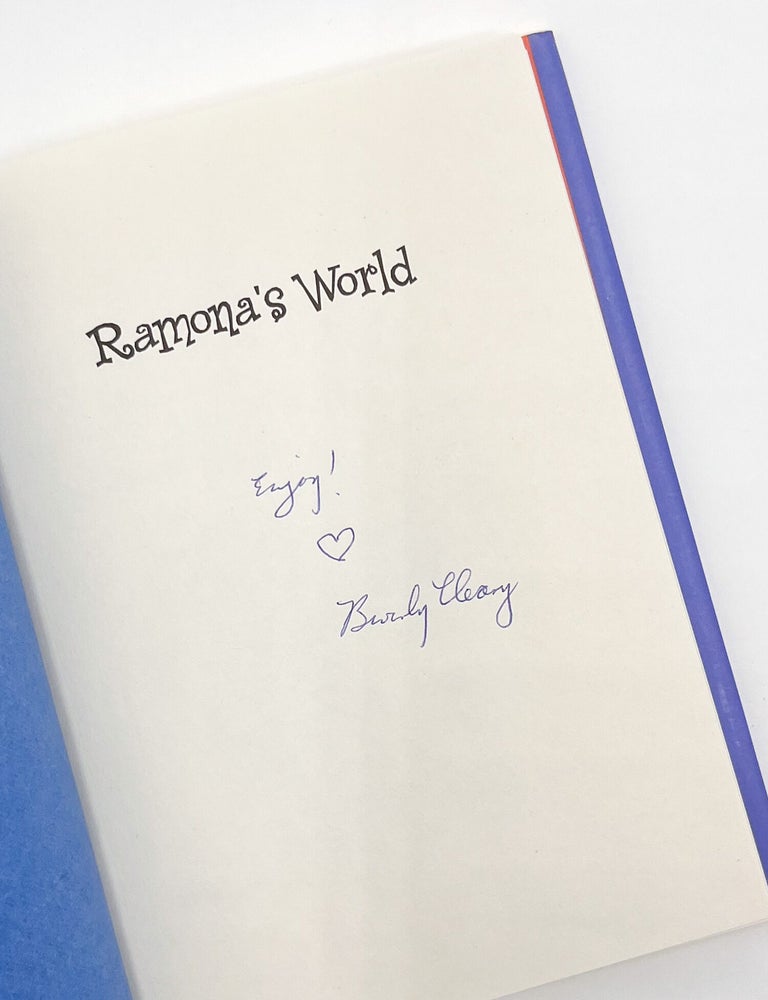 Ramona's World
Enjoy!
Beverly Cleary